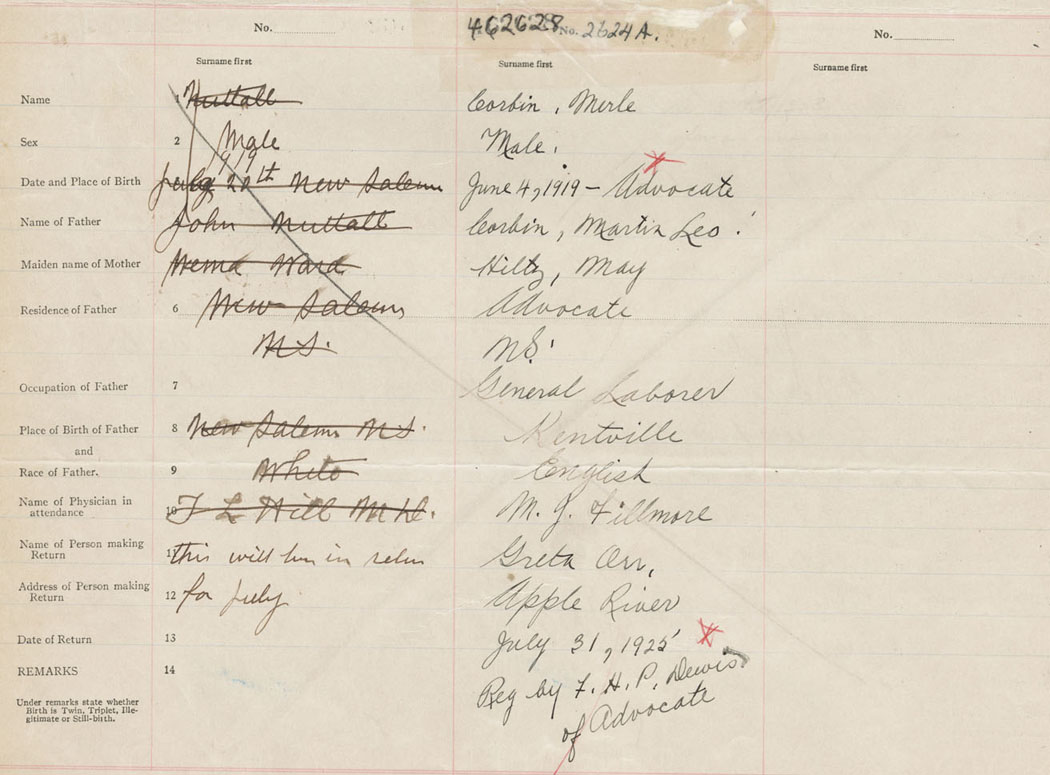 No.
462628 No. 2624 A.
No.
Surname first
Surname first
Surname first
Name 1 Nuttall Corbin, Merle
Sex 2 Male Male.
1919
Date and Place of Birth July 20th New Salem June 4, 1919 - Advocate
Name of Father John Nuttall Corbin, Martin Leo.
Maiden name of Mother Ward Hiltz, May
Residence of Father 6 New Salem Advocate
N.S. N.S.
Occupation of Father 7 General Laborer
Place of Birth of Father 8 New Salem N.S. Kentville
and
Race of Father. 9 White English
Name of Physician in
attendance 10 T L Hill M.D. M. J. Fillmore
Name of Person making
Return 11 this will be in return Greta Orr,
Address of Person making
Return 12 for July Apple River
Date of Return 13 July 31, 1925
REMARKS 14 Reg by F. H. P. Dewis
of Advocate
Under remarks state whether
Birth is Twin, Triplet, Ille-
gitimate or Still-birth.